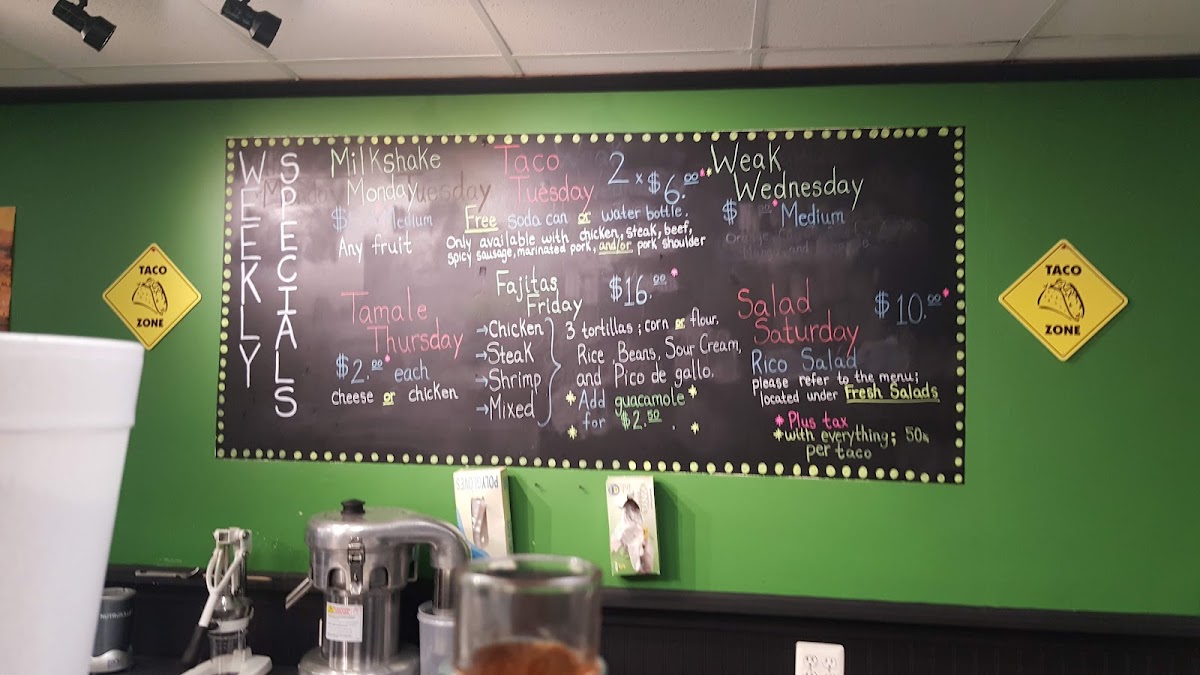 WEEKLY
SPECIALS
Milkshake
Monday
$ Medium
Any fruit
Taco
Tuesday
2 x $6.00**
Free soda can or water bottle.
Only available with chicken, steak, beef,
spicy sausage, marinated pork, and/or pork shoulder
Weak
Wednesday
$ * Medium
Tamale
Thursday
$2.00* each
cheese or chicken
Fajitas
Friday
$16.00*
→Chicken
→Steak
→Shrimp
→Mixed
3 tortillas; corn or flour,
Rice, Beans, Sour Cream,
and Pico de gallo.
*Add guacamole*
*for $2.50. *
Salad
Saturday
$10.00*
Rico Salad
please refer to the menu;
located under Fresh Salads
* Plus tax
*with everything; 50¢
per taco
TACO
ZONE
TACO
ZONE
POLY GLOVES